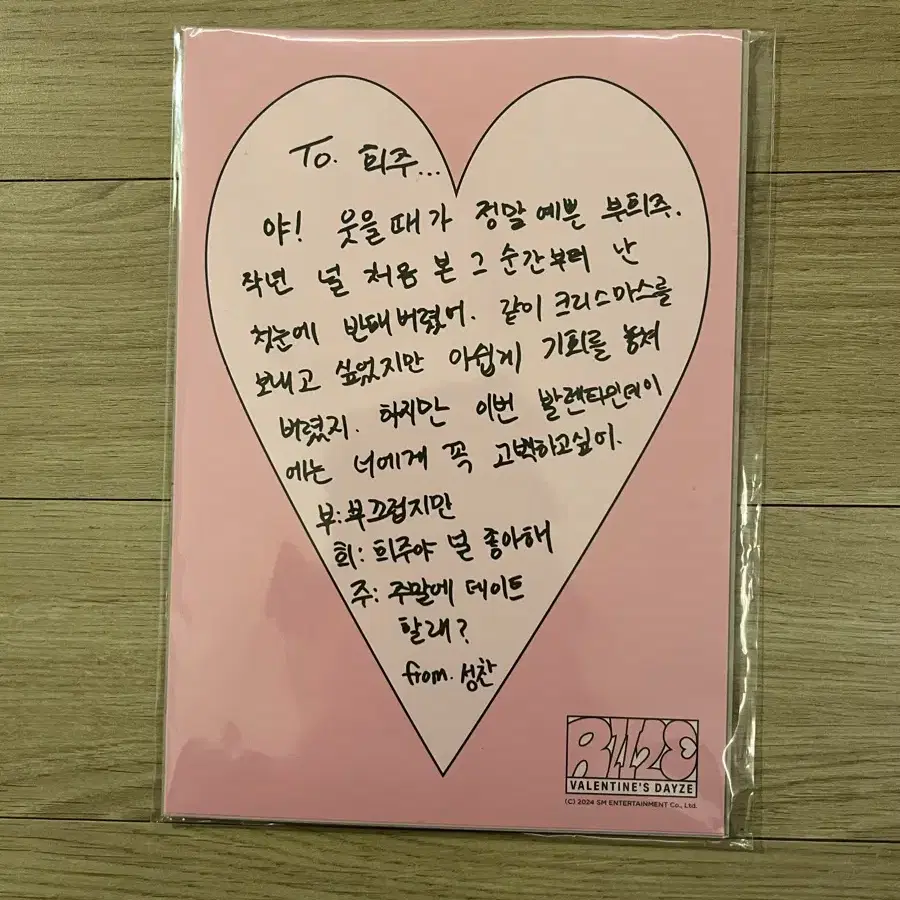 To. 희주...
야! 웃을때가 정말 예쁜 부희주.
작년 널 처음 본 그 순간부터 난
첫눈에 반해버렸어. 같이 크리스마스를
보내고 싶었지만 아쉽게 기회를 놓쳐
버렸지. 하지만 이번 발렌타인데이
에는 너에게 꼭 고백하고싶어.
부: 부끄럽지만
희: 희주야 널 좋아해
주: 주말에 데이트
할래?
from. 성찬
RIIZE
VALENTINE'S DAYZE
(C) 2024 SM ENTERTAINMENT Co., Ltd.